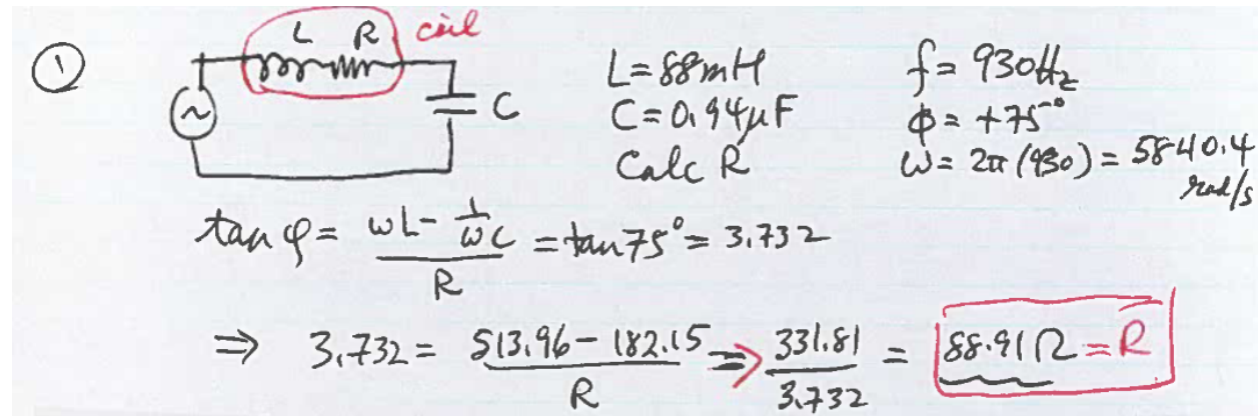 ① L R coil
~ C
L=88mH f=930Hz
C=0.94μF φ=+75°
Calc R ω=2π(930)=5840.4 rad/s
tan φ = (ωL - 1/ωC)/R = tan75° = 3.732
⇒ 3.732 = (513.96 - 182.15)/R ⇒ 331.81/3.732 = 88.91Ω = R